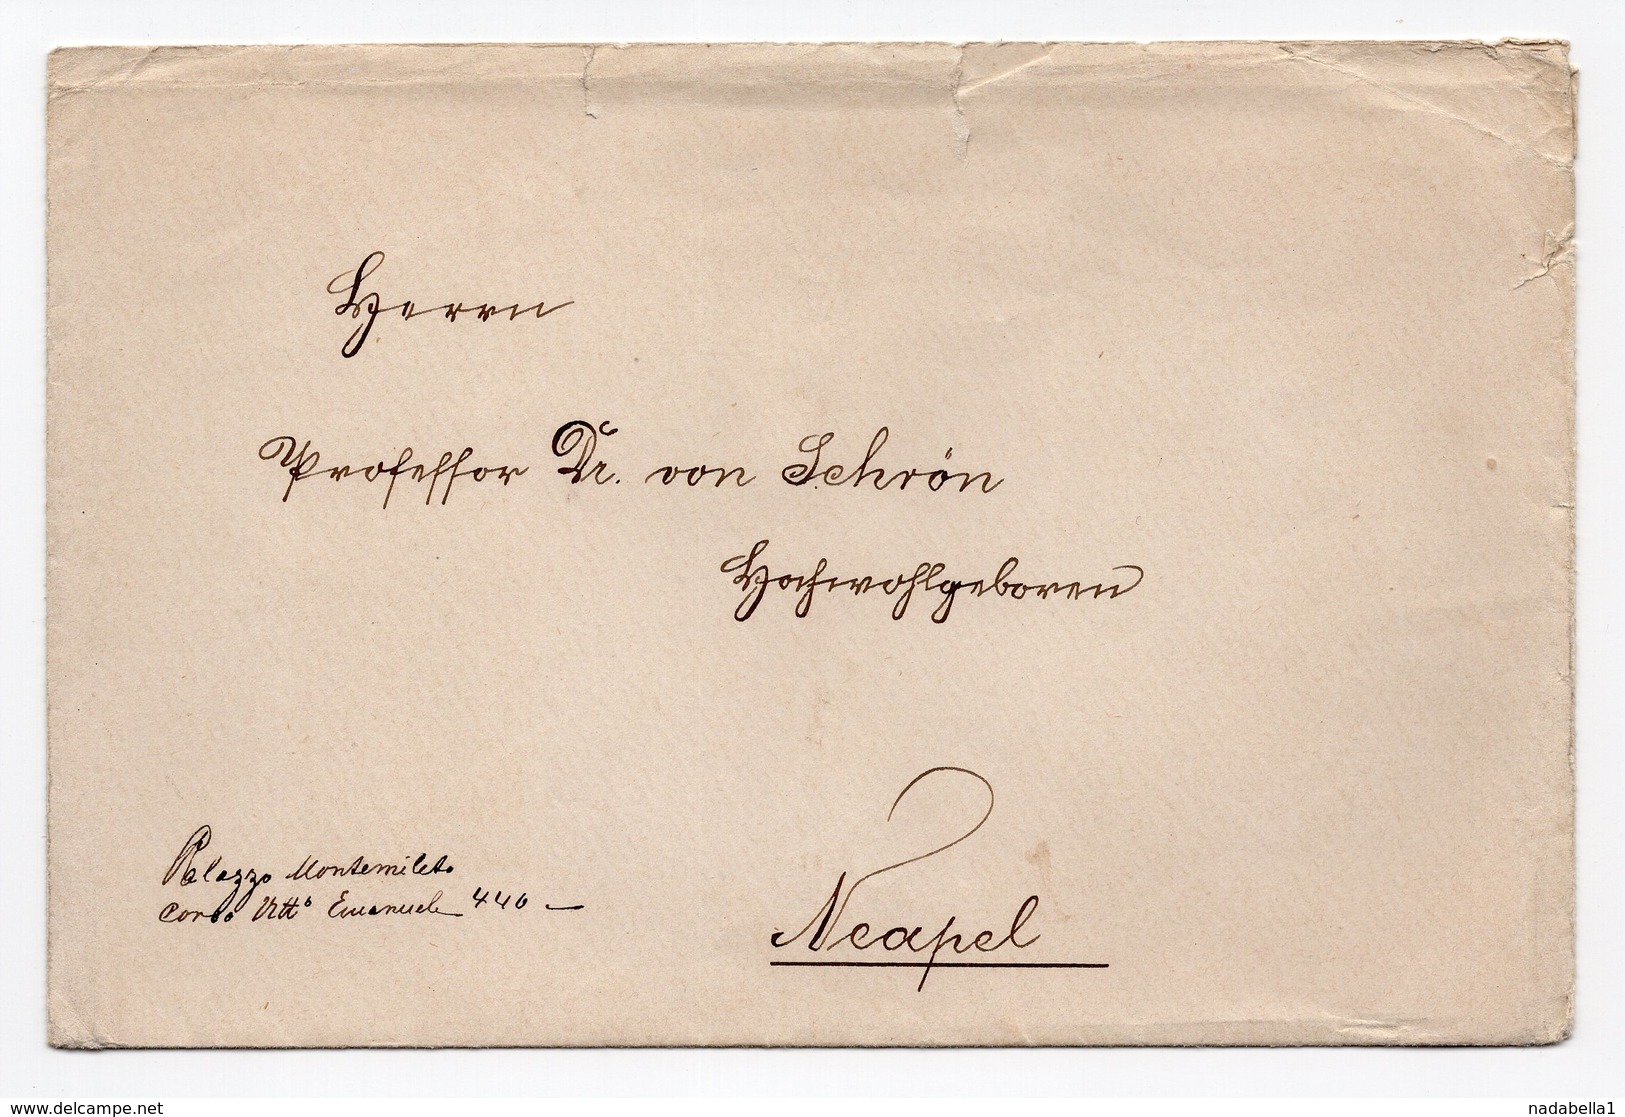 Herrn
Professor Dr. von Schrön
Hochwohlgeboren
Palazzo Montemileto
Corso Vittº Emanuele 440 —
Neapel
www.delcampe.net
nadabella1